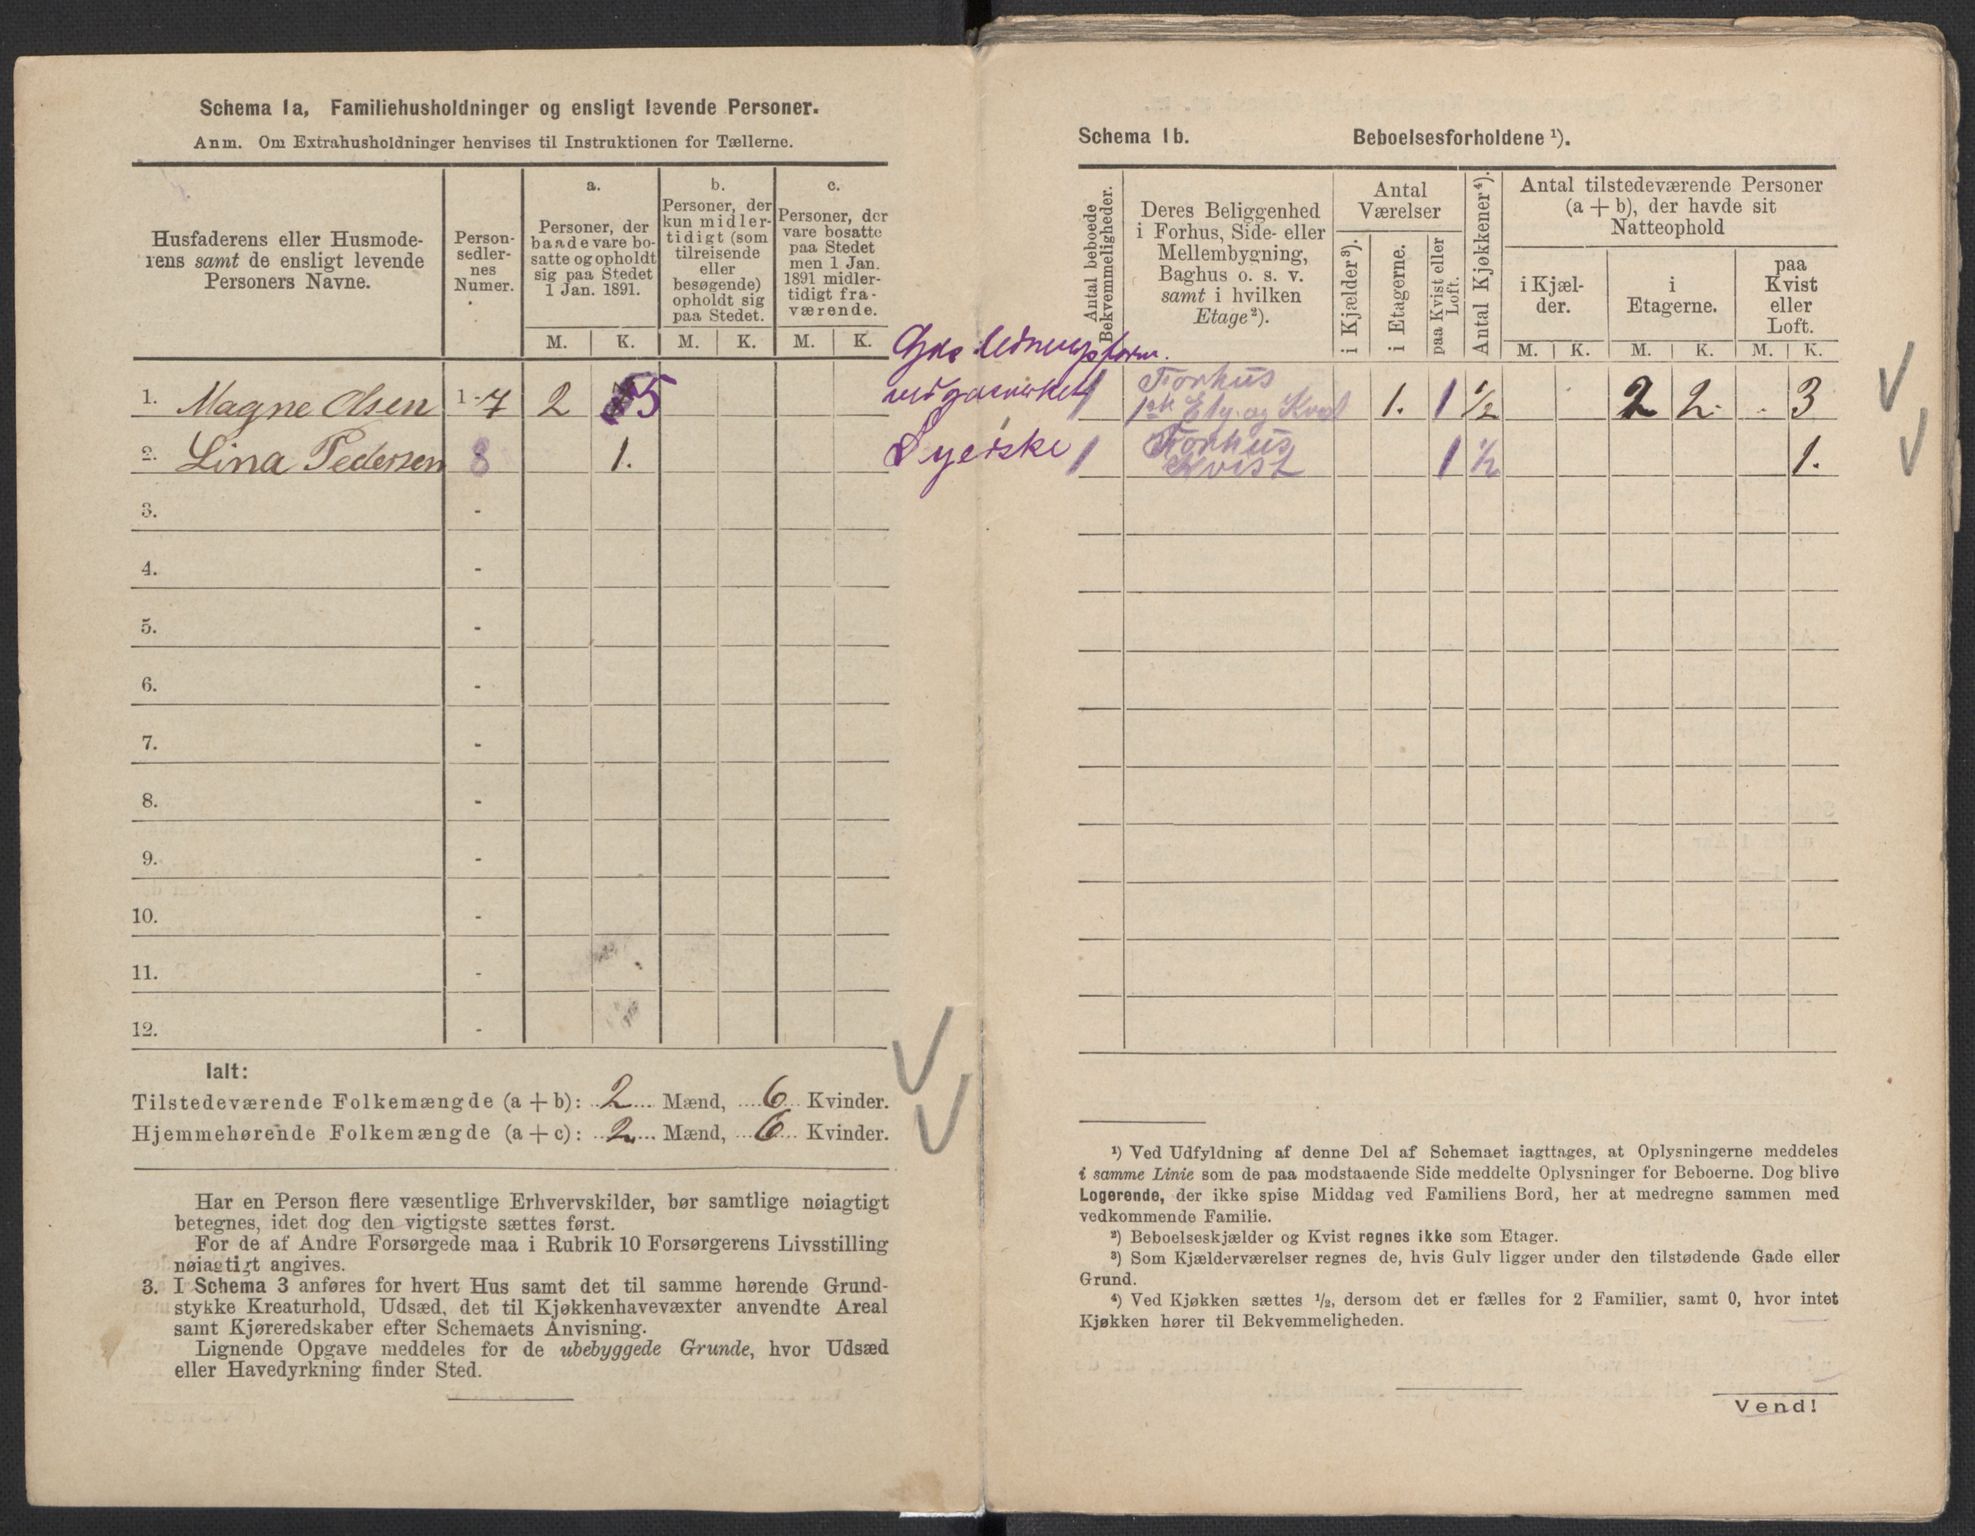 Schema 1a, Familiehusholdninger og ensligt levende Personer.
Anm. Om Extrahusholdninger henvises til Instruktionen for Tællerne.
Husfaderens eller Husmode-
rens samt de ensligt levende
Personers Navne.
Person-
sedler-
nes
Numer.
a.
Personer, der
baade vare bo-
satte og opholdt
sig paa Stedet
1 Jan. 1891.
b.
Personer, der
kun midler-
tidigt (som
tilreisende
eller
besøgende)
opholdt sig
paa Stedet.
c.
Personer, der
vare bosatte
paa Stedet
men 1 Jan.
1891 midler-
tidigt fra-
værende.
M. K. M. K. M. K.
1. Magne Olsen 1-7 2 5
2. Lina Pedersen 8 1.
3. -
4. -
5. -
6. -
7. -
8. -
9. -
10. -
11. -
12. -
Ialt:
Tilstedeværende Folkemængde (a + b): 2 Mænd, 6 Kvinder.
Hjemmehørende Folkemængde (a + c): 2 Mænd, 6 Kvinder.
Har en Person flere væsentlige Erhvervskilder, bør samtlige nøiagtigt
betegnes, idet dog den vigtigste sættes først.
For de af Andre Forsørgede maa i Rubrik 10 Forsørgerens Livsstilling
nøiagtigt angives.
3. I Schema 3 anføres for hvert Hus samt det til samme hørende Grund-
stykke Kreaturhold, Udsæd, det til Kjøkkenhavevæxter anvendte Areal
samt Kjøreredskaber efter Schemaets Anvisning.
Lignende Opgave meddeles for de ubebyggede Grunde, hvor Udsæd
eller Havedyrkning finder Sted.
Schema 1b. Beboelsesforholdene ¹).
Antal beboede
Bekvemmeligheder.
Deres Beliggenhed
i Forhus, Side- eller
Mellembygning,
Baghus o. s. v.
samt i hvilken
Etage²).
Antal
Værelser
i Kjælder³).
i Etagerne.
paa Kvist eller
Loft.
Antal Kjøkkener⁴).
Antal tilstedeværende Personer
(a + b), der havde sit
Natteophold
i Kjæl-
der.
i
Etagerne.
paa
Kvist
eller
Loft.
M. K. M. K. M. K.
ved gasverket 1 Forhus
1ste Etg. og Kvist 1. 1 ½ 2 2 3
Syerske 1 Forhus
Kvist 1 ½ 1.
¹) Ved Udfyldning af denne Del af Schemaet iagttages, at Oplysningerne meddeles
i samme Linie som de paa modstaaende Side meddelte Oplysninger for Beboerne. Dog blive
Logerende, der ikke spise Middag ved Familiens Bord, her at medregne sammen med
vedkommende Familie.
²) Beboelseskjælder og Kvist regnes ikke som Etager.
³) Som Kjælderværelser regnes de, hvis Gulv ligger under den tilstødende Gade eller
Grund.
⁴) Ved Kjøkken sættes ½, dersom det er fælles for 2 Familier, samt 0, hvor intet
Kjøkken hører til Bekvemmeligheden.
Vend!